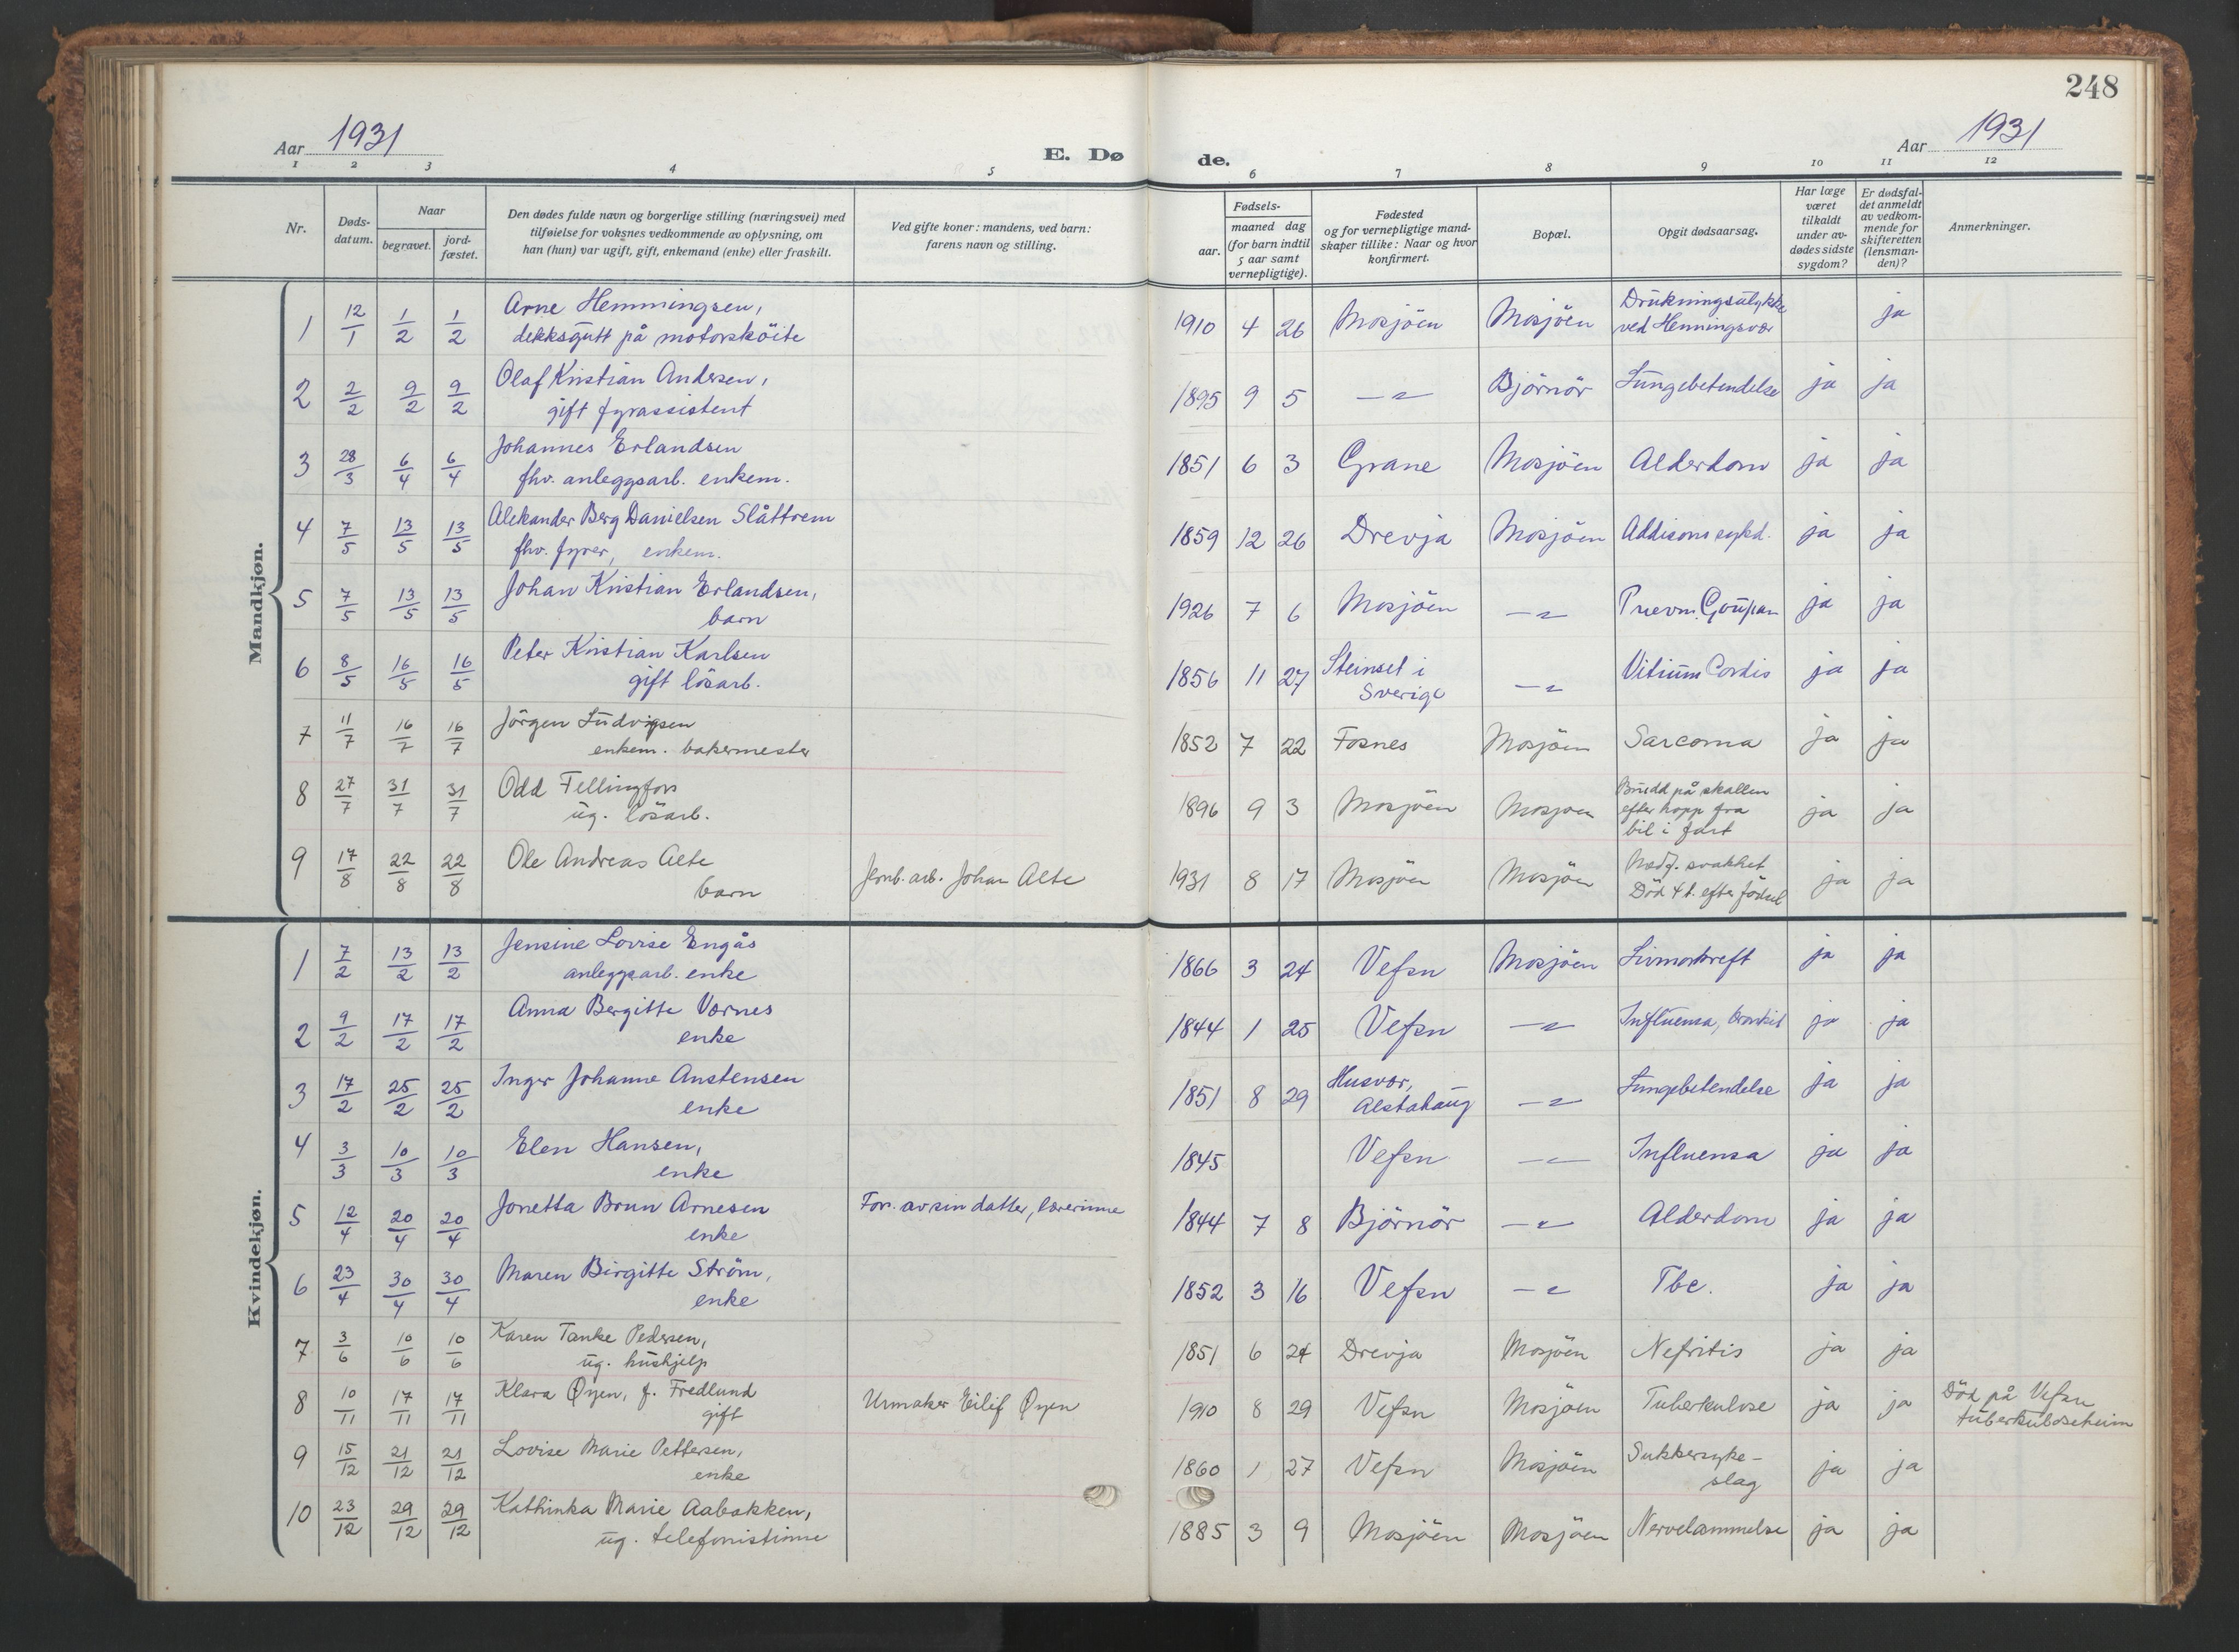 248
Aar 1931
E. Døde.
Aar 1931
1 2 3 4 5 6 7 8 9 10 11 12
Nr.
Døds-datum.
Naar
begravet.
jord-fæstet.
Den dødes fulde navn og borgerlige stilling (næringsvei) med
tilføielse for voksnes vedkommende av oplysning, om
han (hun) var ugift, gift, enkemand (enke) eller fraskilt.
Ved gifte koner: mandens, ved barn:
farens navn og stilling.
Fødsels-
aar.
maaned dag
(for barn indtil
5 aar samt
vernepligtige).
Fødested
og for vernepligtige mand-
skaper tillike: Naar og hvor
konfirmert.
Bopæl.
Opgit dødsaarsag.
Har læge
været
tilkaldt
under av-
dødes sidste
sygdom?
Er dødsfal-
det anmeldt
av vedkom-
mende for
skifteretten
(lensman-
den)?
Anmerkninger.
Mandkjøn.
1 12/1 1/2 1/2 Arne Hemmingsen,
dekksgutt på motorsköite
1910 4 26 Mosjöen Mosjöen Drukningsulykke
ved Henningsvær ja
2 2/2 9/2 9/2 Olaf Kristian Andersen,
gift fyrassistent
1895 9 5 -"- Björnör Lungebetendelse ja ja
3 28/3 6/4 6/4 Johannes Erlandsen
fhv. anleggsarb. enkem.
1851 6 3 Grane Mosjöen Alderdom ja ja
4 7/5 13/5 13/5 Aleksander Berg Danielsen Slåttrem
fhv. fyrer, enkem.
1859 12 26 Drevja Mosjöen Addisons sykd. ja ja
5 7/5 13/5 13/5 Johan Kristian Erlandsen,
barn
1926 7 6 Mosjöen -"- ja ja
6 8/5 16/5 16/5 Peter Kristian Karlsen
gift lösarb.
1856 11 27 Steinset i
Sverige -"- Vitium Cordis ja ja
7 11/7 16/7 16/7 Jörgen Ludvigsen
enkem. bakermester
1852 7 22 Fosnes Mosjöen Sarcoma ja ja
8 27/7 31/7 31/7 Odd Fellingfors
ug. lösarb.
1896 9 3 Mosjöen Mosjöen Brudd på skallen
efter hopp fra
bil i fart ja ja
9 17/8 22/8 22/8 Ole Andreas Alte
barn
Jernb. arb. Johan Alte
1931 8 17 Mosjöen Mosjöen Medf. svakhet
Död 4 t. efter födsel ja ja
Kvindekjøn.
1 7/2 13/2 13/2 Jensine Lovise Engås
anleggsarb. enke
1866 3 24 Vefsn Mosjöen Livmorkreft ja ja
2 9/2 17/2 17/2 Anna Bergitte Vornes
enke
1844 1 25 Vefsn -"- Influensa, bronkit ja ja
3 17/2 25/2 25/2 Inger Johanne Anstensen
enke
1851 8 29 Husvær,
Alstahaug -"- Lungebetendelse ja ja
4 3/3 10/3 10/3 Elen Hansen,
enke
1845 Vefsn -"- Influensa ja ja
5 12/4 20/4 20/4 Jonetta Brun Arnesen
enke
Fors. av sin datter, lærerinne
1844 7 8 Björnör -"- Alderdom ja ja
6 23/4 30/4 30/4 Maren Birgitte Ström,
enke
1852 3 16 Vefsn -"- Tbc. ja ja
7 3/6 10/6 10/6 Karen Tanke Pedersen,
ug. hushjelp
1851 6 24 Drevja Mosjöen Nefritis ja ja
8 10/11 17/11 17/11 Klara Øyen, f. Fredlund
gift
Urmaker Eilif Øyen
1910 8 29 Vefsn Mosjöen Tuberkulose ja ja Död på Vefsn
tuberkuloseheim
9 15/12 21/12 21/12 Lovise Marie Pettersen,
enke
1860 1 27 Vefsn Mosjöen Sukkersyke-
slag ja ja
10 23/12 29/12 29/12 Kathinka Marie Aabakken,
ug. telefonistinne
1885 3 9 Mosjöen Mosjöen Nervelammelse ja ja